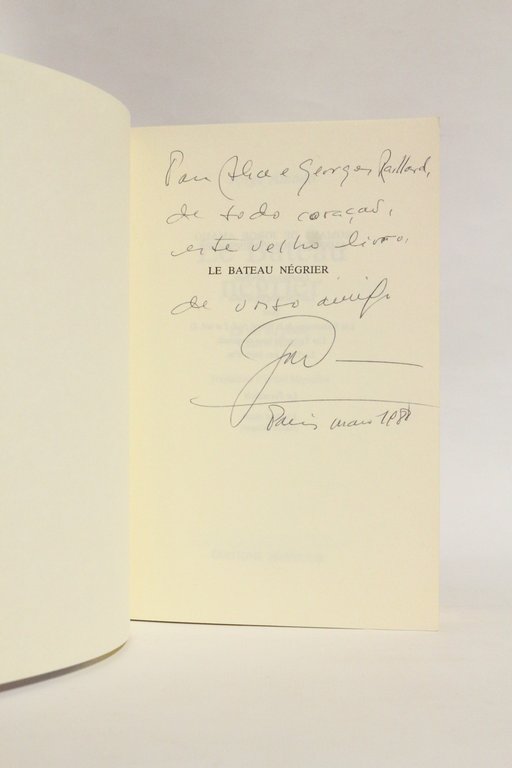 Para Alice e Georges Raillard,
de todo coração,
este velho livro,
LE BATEAU NÉGRIER
de vosso amigo
Paris mars 198